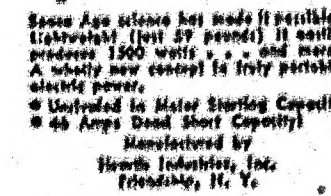 Space Age science has made it possible
Lightweight (just 27 pounds) it easily
produces 1500 watts . . . and more
A wholly new concept in truly portable
electric power.
● Unlimited in Motor Starting Capacity
● Amps Dead Short Capacity!
Manufactured by
Industries, Inc.
N. Y.